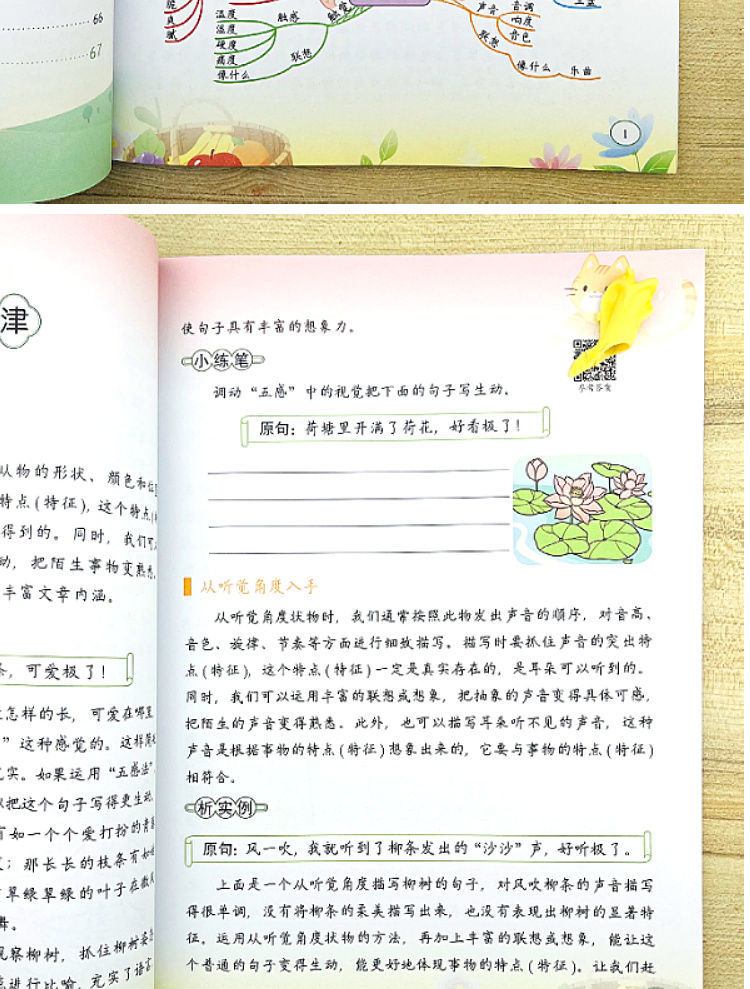 66
67
脏
臭
腻
温度
湿度
硬度
痛度
像什么
触感
联想
声音
联想
音调
响度
音色
像什么
乐曲
1
津
从物的形状、颜色和位
特点(特征)，这个特点
得到的。同时，我们可
动，把陌生事物变熟悉，
丰富文章内涵。
条，可爱极了！
怎样的长，可爱在哪里
”这种感觉的。这样简
实。如果运用“五感法”
把这个句子写得更生动。
有如一个个爱打扮的青
；那长长的枝条有如
翠绿翠绿的叶子在微风
舞。
观察柳树，抓住柳树姿
进行比喻，充实了语言
使句子具有丰富的想象力。
小练笔
参考答案
调动“五感”中的视觉把下面的句子写生动。
原句：荷塘里开满了荷花，好看极了！
从听觉角度入手
从听觉角度状物时，我们通常按照此物发出声音的顺序，对音高、
音色、旋律、节奏等方面进行细致描写。描写时要抓住声音的突出特
点(特征)，这个特点(特征)一定是真实存在的，是耳朵可以听到的。
同时，我们可以运用丰富的联想或想象，把抽象的声音变得具体可感，
把陌生的声音变得熟悉。此外，也可以描写耳朵听不见的声音，这种
声音是根据事物的特点(特征)想象出来的，它要与事物的特点(特征)
相符合。
析实例
原句：风一吹，我就听到了柳条发出的“沙沙”声，好听极了。
上面是一个从听觉角度描写柳树的句子，对风吹柳条的声音描写
得很单调，没有将柳条的柔美描写出来，也没有表现出柳树的显著特
征。运用从听觉角度状物的方法，再加上丰富的联想或想象，能让这
个普通的句子变得生动，能更好地体现事物的特点(特征)。让我们赶